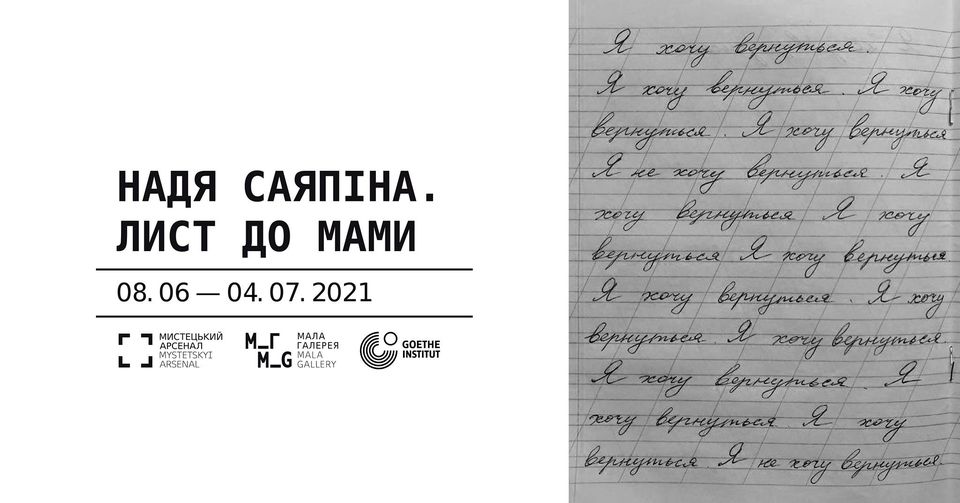 НАДЯ САЯПІНА.
ЛИСТ ДО МАМИ
08. 06 — 04. 07. 2021
МИСТЕЦЬКИЙ
АРСЕНАЛ
MYSTETSKYI
ARSENAL
М_Г
M_G
МАЛА
ГАЛЕРЕЯ
MALA
GALLERY
GOETHE
INSTITUT
Я хочу вернуться.
Я хочу вернуться. Я хочу
вернуться. Я хочу вернуться
Я не хочу вернуться. Я
хочу вернуться Я хочу
вернуться Я хочу вернуться
Я хочу вернуться. Я хочу
вернуться. Я хочу вернуться.
Я хочу вернуться. Я
хочу вернуться. Я хочу
вернуться. Я не хочу вернуться.